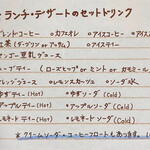 ランチ・デザートのセットドリンク
ブレンドコーヒー ○カフェオレ ○アイスコーヒー ○アイス
紅茶(ダージリン or アッサム) ○アイスティー
マンゴー豆乳
ハーブティー (ローズヒップ or ミント or カモミール
オレンジジュース ○レモンスカッシュ ○ソーダ水
ゆずティー(Hot) ○ゆずソーダ(Cold)
アップルティー(Hot) ○アップルソーダ(Cold)
レモネード(Hot) ○レモネードソーダ(Cold)
★クリームソーダ・コーヒーフロートもあります。